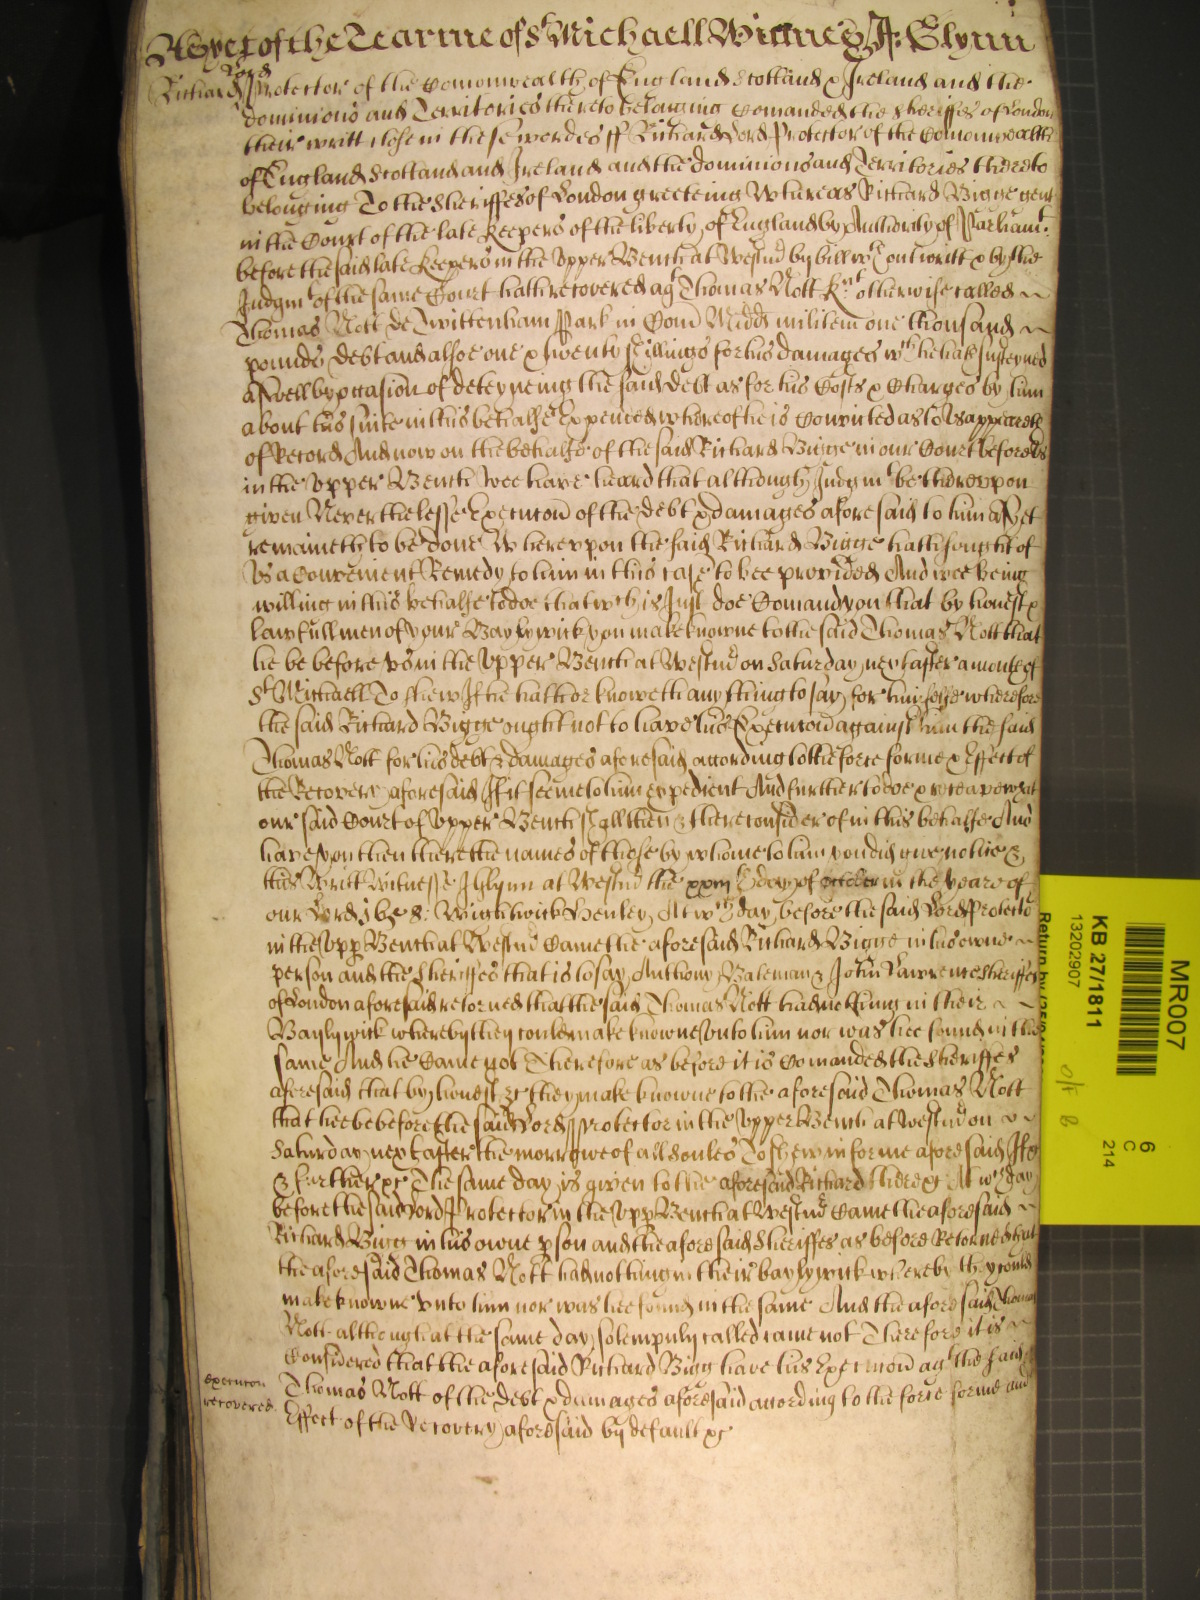 As yet of the Tearme of St Michaell Witnes J: Glynn
Lord
Richard Protector of the Comonwealth of England Scotland & Ireland and the
dominions and Territories thereto belonging Comanded the Sheriffes of London
their writt close in these wordes ss Richard Lord Protector of the Comonwealth
of England Scotland and Ireland and the dominions and Territories thereto
belonging To the Sheriffes of London greeteing Whereas Richard Bigge gent
in the Court of the late Keepers of the liberty of England by Authority of Parliamt:
before the said late Keepers in the Upper Bench at Westmr by bill wthout writt & by the
Judgmt of the same Court hath recovered agt Thomas Nott Knt otherwise called
Thomas Nott de Twittenham Park in Com Midd militem one thousand
pounds debt and alsoe one & twenty shillings for his damages wch he hath susteyned
aswell by occasion of deteyneing the said debt as for his Costs & Charges by him
about his suite in this behalfe Expended whereof he is Convicted as to Us appeareth
of Record And now on the behalfe of the said Richard Bigge in our Court before Us
in the Upper Bench wee have heard that although Judgmt be thereupon
given Neverthelesse Execucon of the debt & damages aforesaid to him as yet
remaineth to be done Whereupon the said Richard Bigge hath sought of
Us a Convenient Remedy to him in this case to bee provided And wee being
willing in this behalfe to doe that wch is Just doe Comand you that by honest &
lawfull men of your Baylywick you make knowne to the said Thomas Nott that
he be before us in the Upper Bench at Westmr on Saturday next after a moneth of
St Michaell To shew If he hath or knoweth any thing to say for himselfe wherefore
the said Richard Bigge ought not to have his Execucon against him the said
Thomas Nott for his debt & damages aforesaid according to the force forme & Effect of
the Recovery aforesaid If it seeme to him expedient And further to doe & receave what
our said Court of Upper Bench shall then & there consider of in this behalfe And
have you then there the names of those by whome to him you did give notice &
this Writt Witnesse J Glynn at Westmr the xxiijth day of October in the yeare of
our Lord 1658: Wightwick Henley At wch day before the said Lord Protector
in the Upp Bench at Westmr Came the aforesaid Richard Bigge in his owne
person and the Sheriffes that is to say Anthony Bateman & John Lawrence Sheriffes
of London aforesaid retorned that the said Thomas Nott had nothing in their
Baylywick whereby they could make knowne unto him nor was hee found in the
same And he Came not Therefore as before it is Comanded the Sheriffes
aforesaid that by honest &c they make knowne to the aforesaid Thomas Nott
that hee be before the said Lord Protector in the Upper Bench at Westmr on
Saturday next after the morrowe of all Soules To shew in forme aforesaid If &c
& further &c The same day is given to the aforesaid Richard there &c At wch day
before the said Lord Protector in the Upp Bench at Westmr Came the aforesaid
Richard Bigg in his owne pson and the aforesaid Sheriffes as before Retorned that
the aforesaid Thomas Nott had nothing in their baylywick whereby they could
make knowne unto him nor was hee found in the same And the aforesaid Thomas
Nott although at the same day solempnly called came not Therefore it is
Considered that the aforesaid Richard Bigg have his Execucon agt the said
Thomas Nott of the debt & damages aforesaid according to the force forme and
Effect of the Recovery aforesaid by default &c
execucon
recovered
MR007
KB 27/1811
13202907
6
C
214